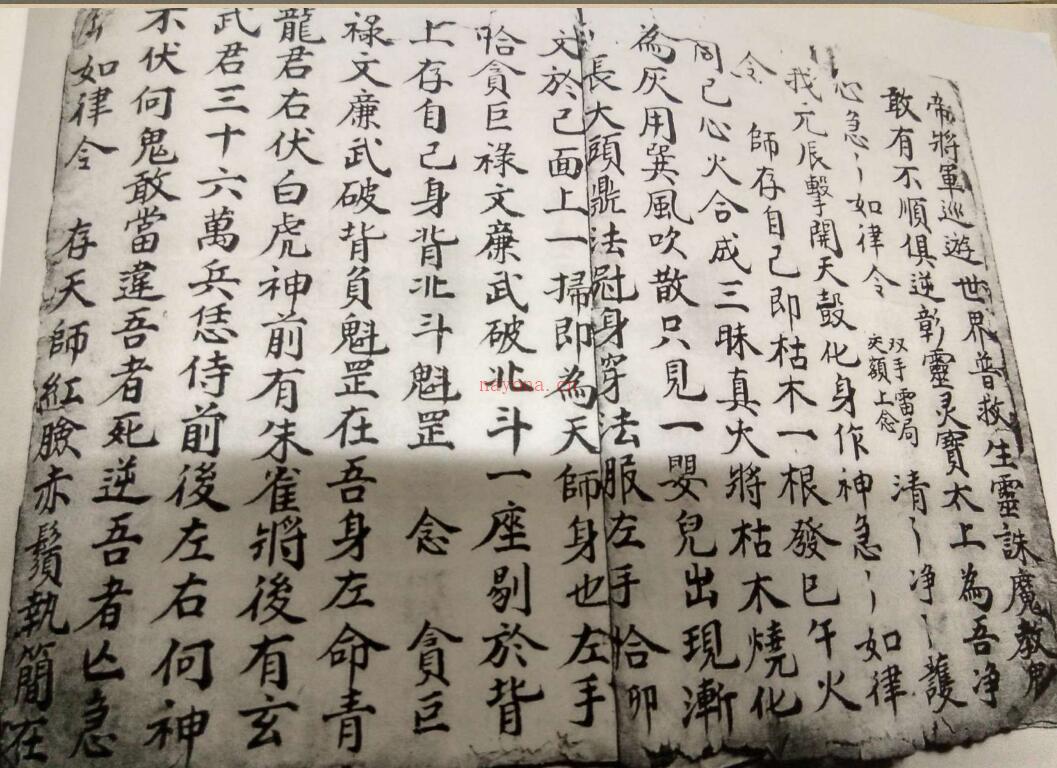 帝將軍巡遊世界普救生靈誅魔教
敢有不順俱逆彰靈灵寶太上為吾净
心急〃如律令 双手雷局夾額上念 清〃净〃護
我元辰擊開天殼化身作神急〃如律
令 師存自己即枯木一根發巳午火
同己心火合成三昧真火將枯木燒化
為灰用巽風吹散只見一嬰兒出現漸
長大頭鼎法冠身穿法服左手恰卯
文於己面上一掃即為天師身也左手
哈貪巨祿文廉武破北斗一座剔於背
上存自己身背北斗魁罡 念 貪巨
祿文廉武破背負魁罡在吾身左命青
龍君右伏白虎神前有朱雀將後有玄
武君三十六萬兵恁侍前後左右何神
不伏何鬼敢當違吾者死逆吾者亡急
如律令 存天師紅臉赤鬚執簡在
nayona.cn